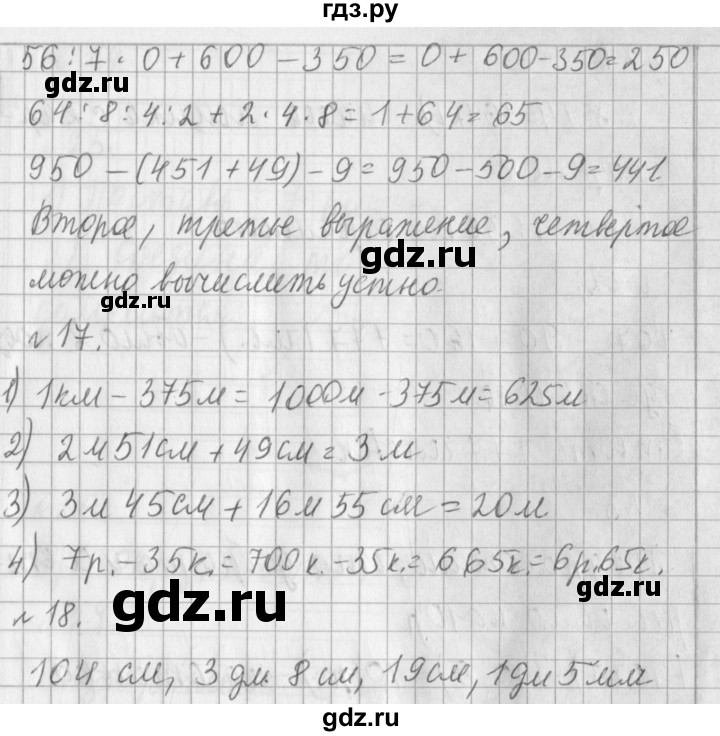 гдз.ру
56:7·0+600-350=0+600-350=250
gdz.ru
64:8:4:2+2·4·8=1+64=65
950-(451+49)-9=950-500-9=441
Второе, третье выражение, четвертое
gdz.ru
можно вычислить устно.
gdz.ru
№17.
1) 1км-375м=1000м-375м=625м
2) 2м51см+49см=3м
gdz.ru
3) 3м 45см+16м 55см=20м
4) 7р.-35к.=700к.-35к.=665к.=6р.65к.
gdz.ru
gdz.ru
№18.
104 см, 3 дм 8 см, 19см, 1дм 5мм
gdz.ru